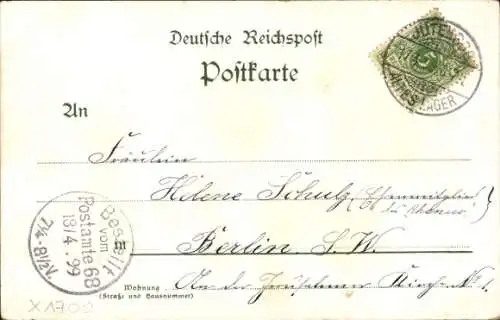 Deutsche Reichspost
Postkarte
JÜTERBOG
ALTES LAGER
5
An
Fräulein
Helene Schulz (Ehrenmitglied
Bestellt
vom
Postamte 68
13/4.99
7¼-8½N.
in
Berlin S.W.
Wohnung
(Straße und Hausnummer)
An der Jerusalemer Kirche No 1.
X1700